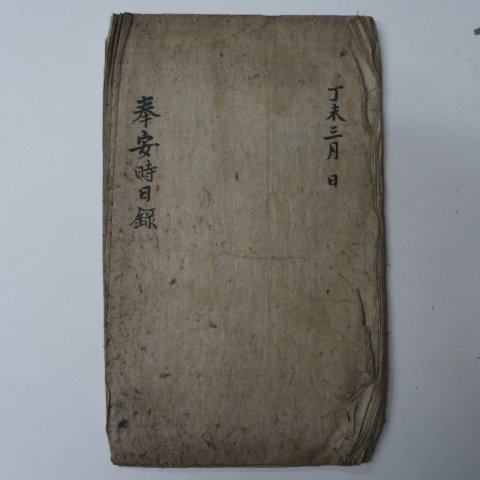 丁未三月 日
奉安時日録